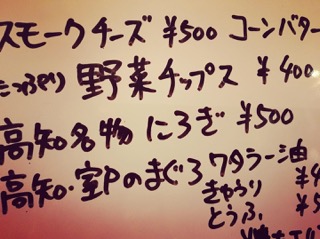 スモークチーズ ¥500 コーンバター
たっぷり 野菜チップス ¥400
高知名物 にろぎ ¥500
高知・室戸のまぐろワタラー油
きゅうり ¥4
とうふ ¥5